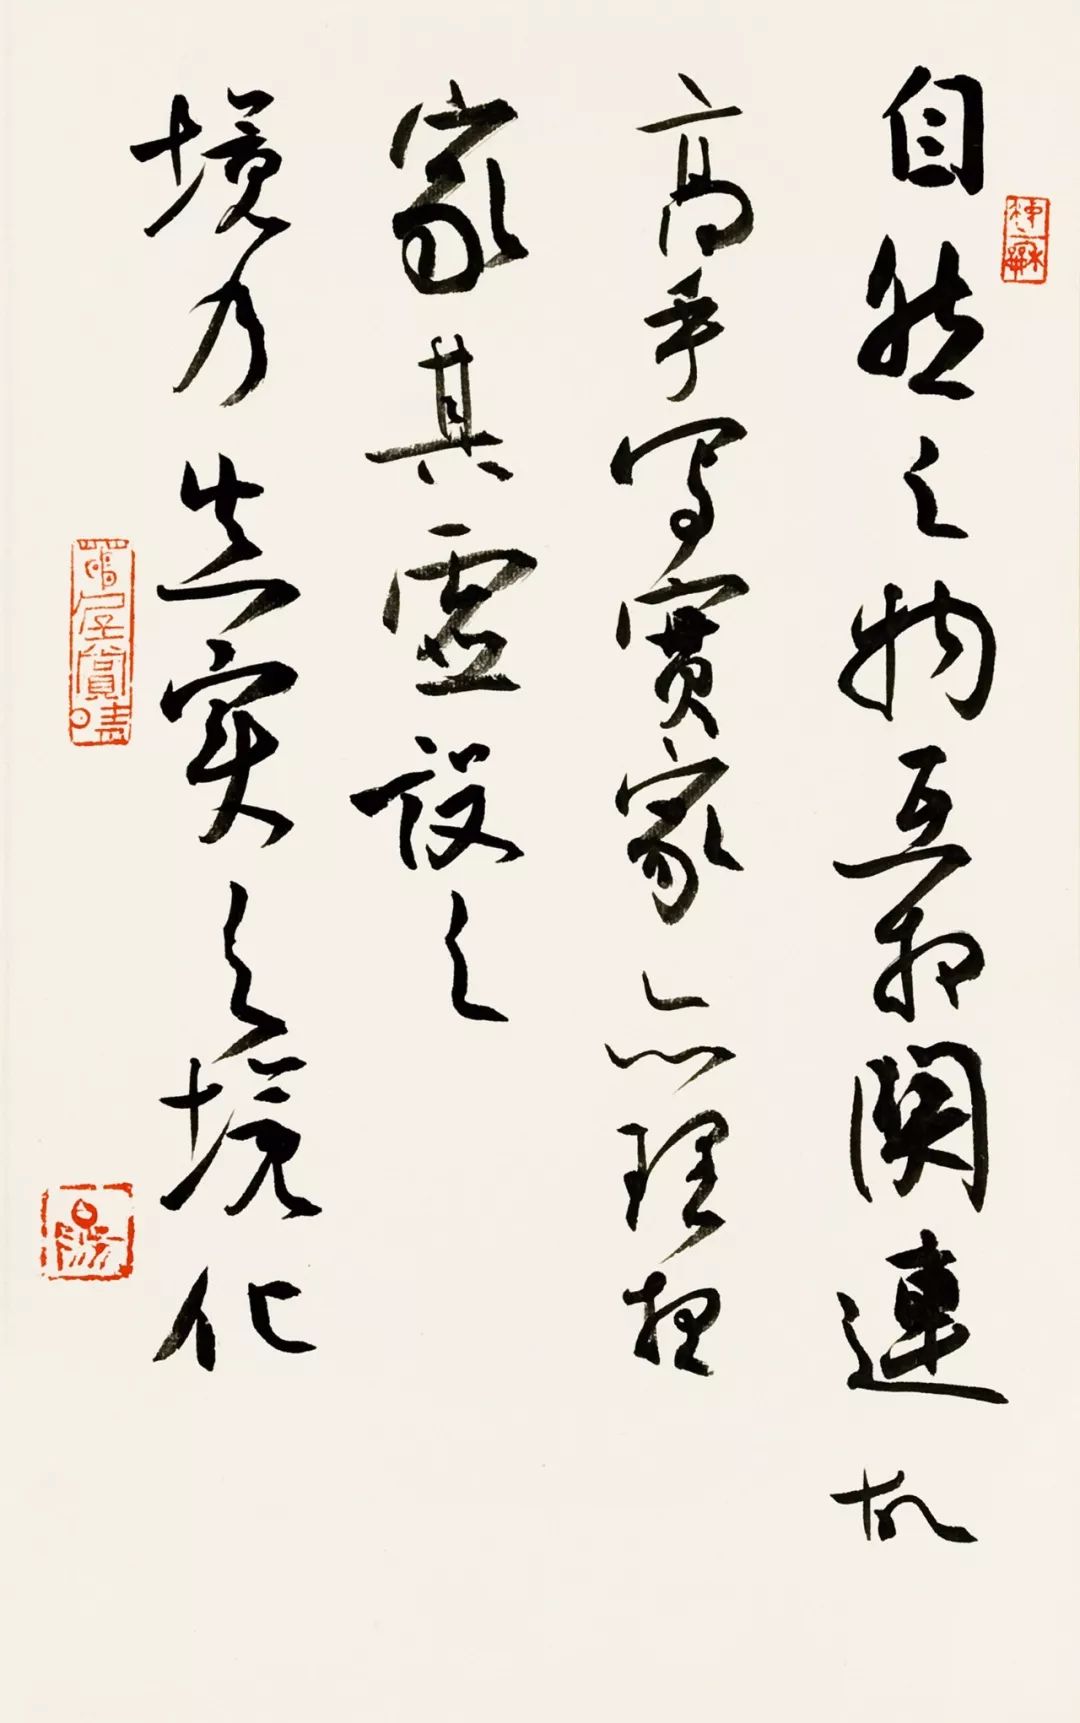 自然之物互相關連故
高手寫實家亦理想
家其虛設之
境乃真實之境化